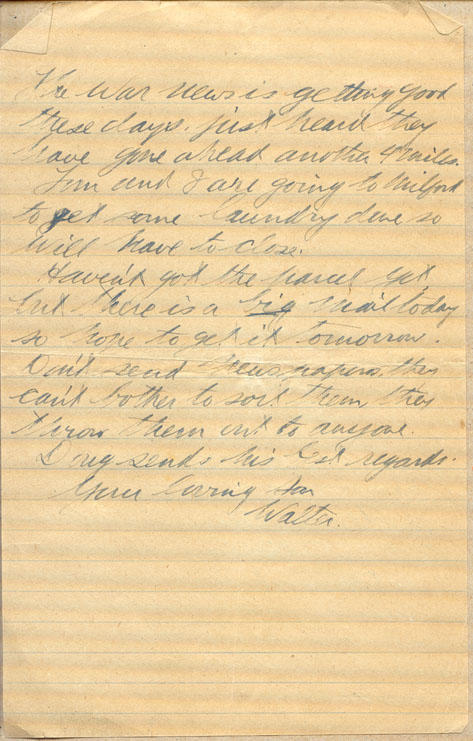 The War news is getting good
these days. just heard they
have gone ahead another 4 miles.
and I are going to Milford
to get some laundry done so
will have to close.
Haven't got the parcel yet
but there is a big mail today
so hope to get it tomorrow.
Don't send Newspapers, they
can't bother to sort them they
throw them out to anyone.
Doug sends his best regards.
Your loving son
Walter.